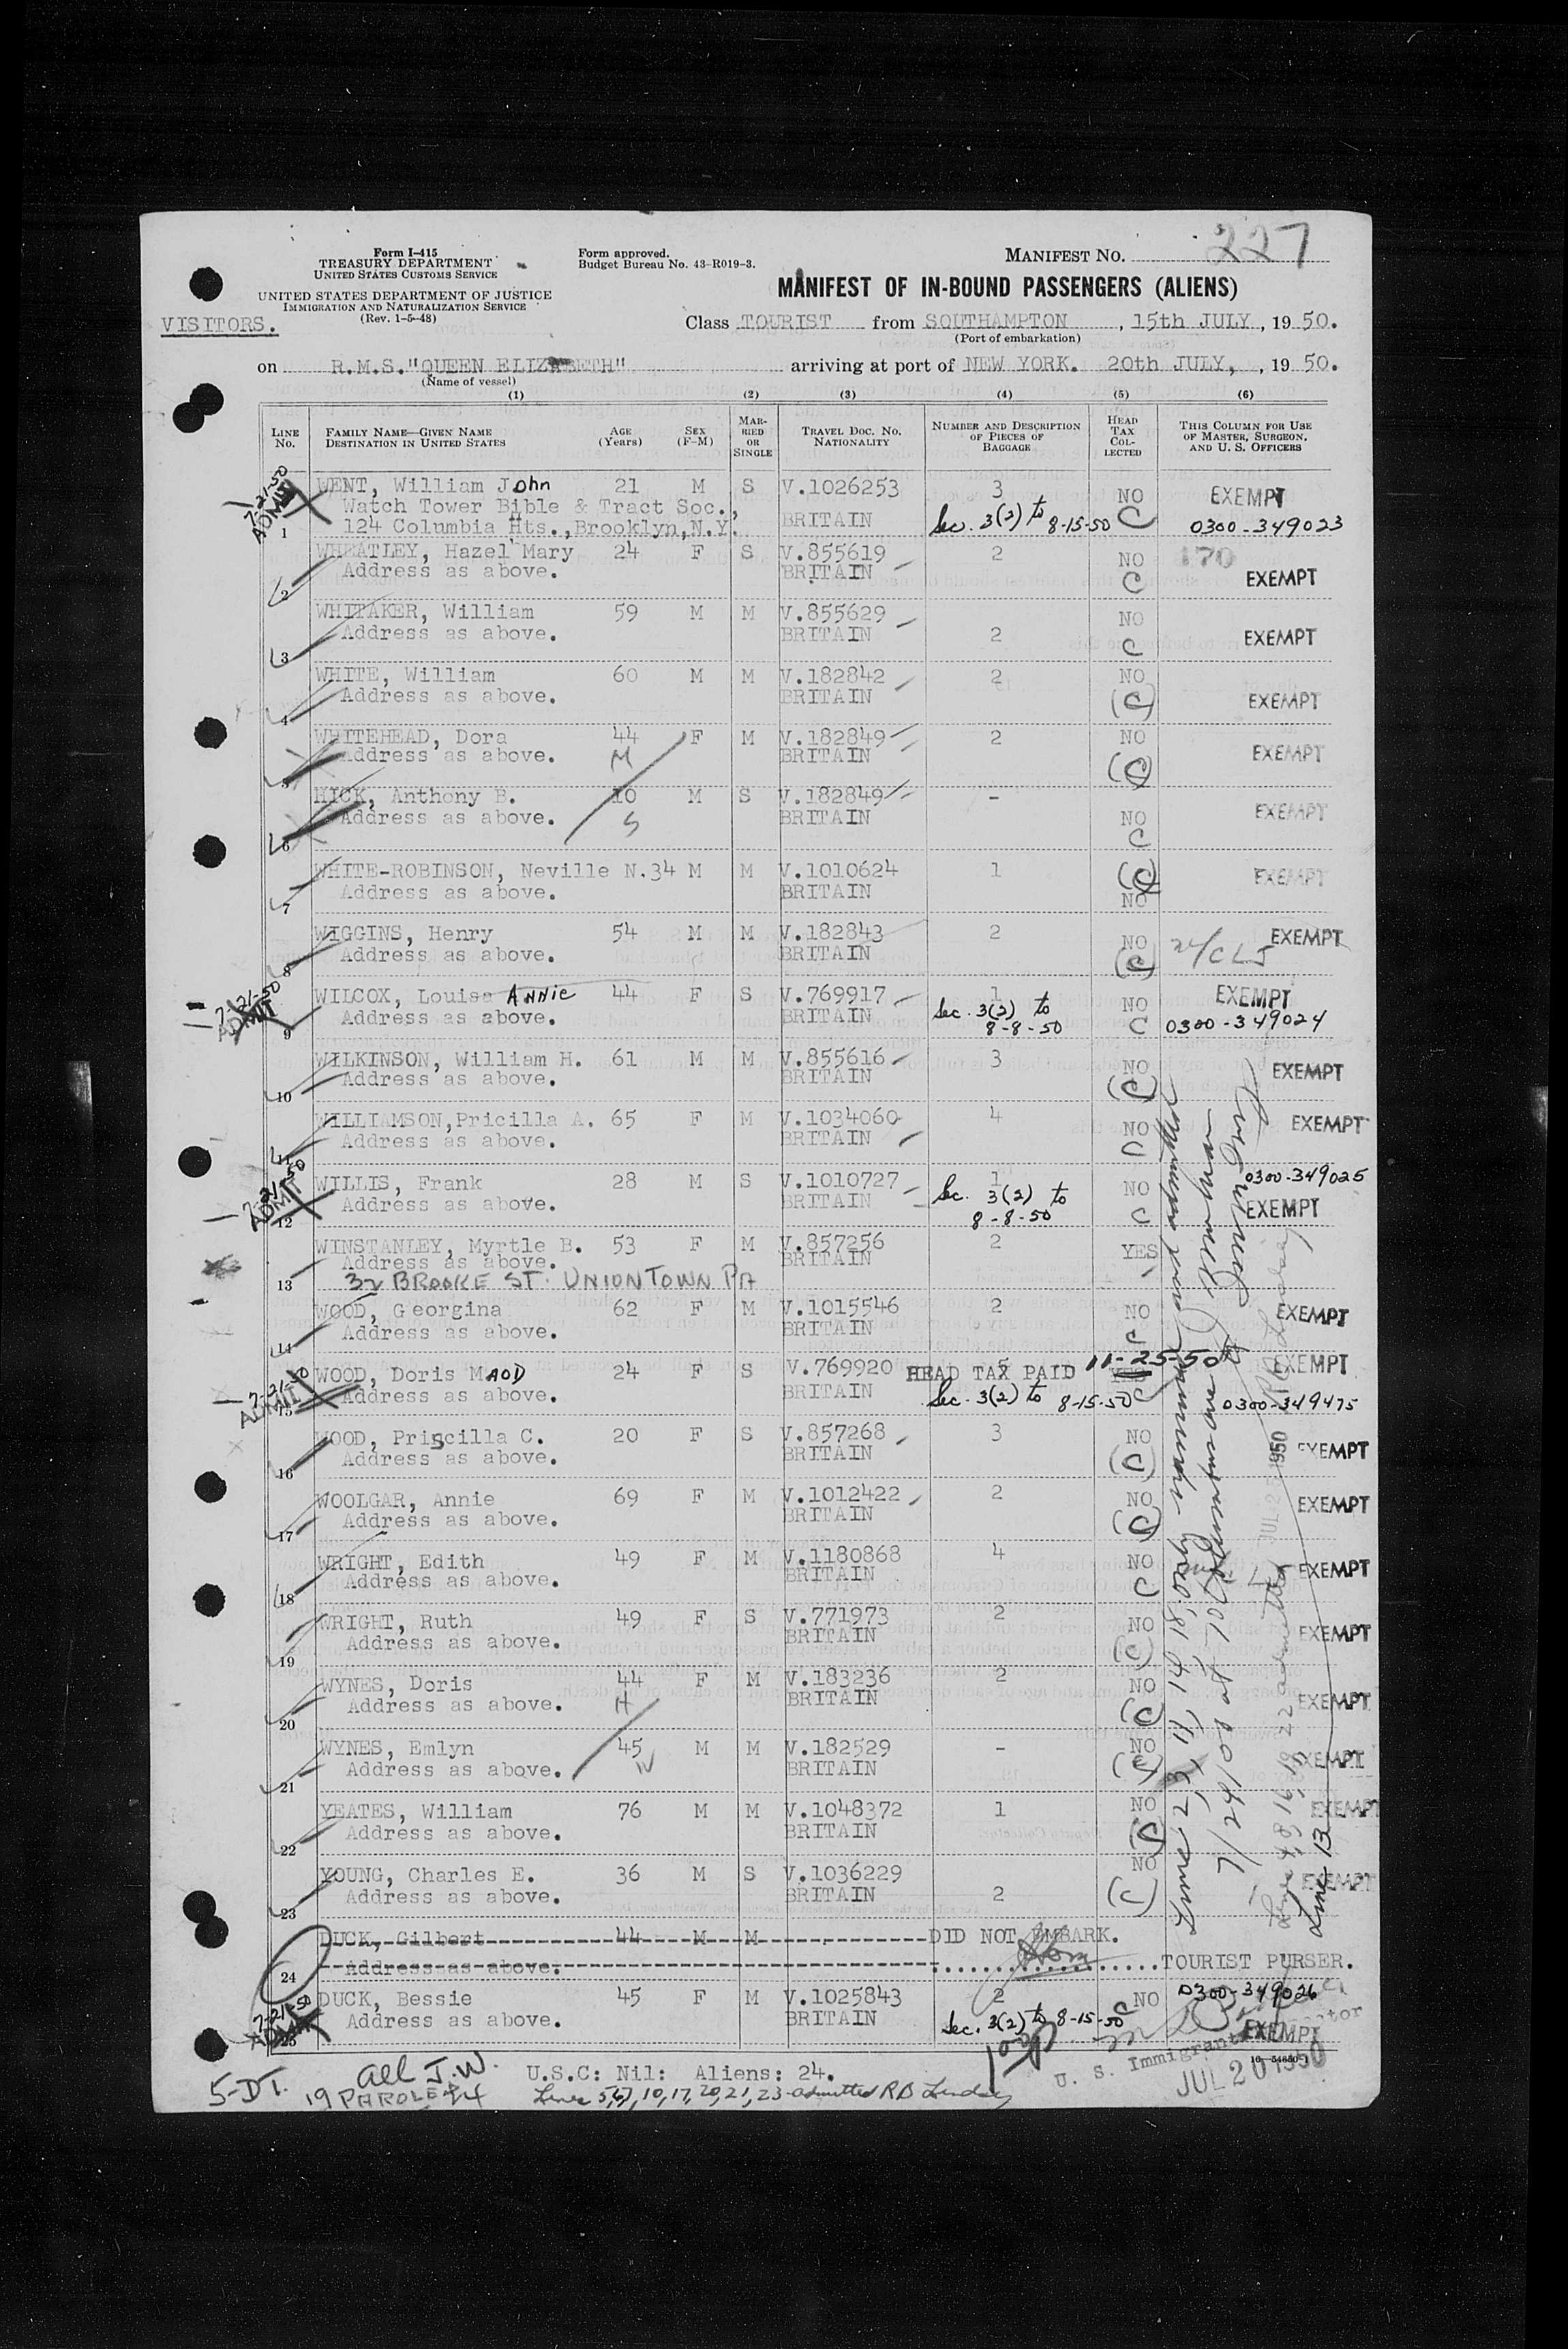 Form I-415
TREASURY DEPARTMENT
UNITED STATES CUSTOMS SERVICE
UNITED STATES DEPARTMENT OF JUSTICE
IMMIGRATION AND NATURALIZATION SERVICE
(Rev. 1-5-48)
VISITORS.
Form approved.
Budget Bureau No. 43-R019-3.
MANIFEST NO. 227
MANIFEST OF IN-BOUND PASSENGERS (ALIENS)
Class TOURIST from SOUTHAMPTON, 15th JULY, 19 50.
(Port of embarkation)
on R.M.S."QUEEN ELIZABETH" arriving at port of NEW YORK. 20th JULY, , 19 50.
(Name of vessel)
(1) (2) (3) (4) (5) (6)
LINE NO. FAMILY NAME—GIVEN NAME DESTINATION IN UNITED STATES AGE (Years) SEX (F-M) MARRIED OR SINGLE TRAVEL DOC. NO. NATIONALITY NUMBER AND DESCRIPTION OF PIECES OF BAGGAGE HEAD TAX COLLECTED THIS COLUMN FOR USE OF MASTER, SURGEON, AND U. S. OFFICERS
7-21-50 ADMIT
WENT, William John 21 M S V.1026253 3 NO EXEMPT
Watch Tower Bible & Tract Soc.,
1 124 Columbia Hts.,Brooklyn,N.Y. BRITAIN Sec. 3(2) to 8-15-50 C 0300-349023
WHEATLEY, Hazel Mary 24 F S V.855619 2 NO 170
2 Address as above. BRITAIN C EXEMPT
WHITAKER, William 59 M M V.855629 NO
3 Address as above. BRITAIN 2 C EXEMPT
WHITE, William 60 M M V.182842 2 NO
4 Address as above. BRITAIN (C) EXEMPT
WHITEHEAD, Dora 44 F M V.182849 2 NO
5 Address as above. M BRITAIN (C) EXEMPT
HICK, Anthony B. 10 M S V.182849 - NO
6 Address as above. S BRITAIN C EXEMPT
WHITE-ROBINSON, Neville N. 34 M M V.1010624 1 (C)
7 Address as above. BRITAIN NO EXEMPT
WIGGINS, Henry 54 M M V.182843 2 NO EXEMPT
8 Address as above. BRITAIN (C)
7-21-50 ADMIT
WILCOX, Louise Annie 44 F S V.769917 1 NO EXEMPT
9 Address as above. BRITAIN Sec. 3(2) to 8-8-50 C 0300-349024
WILKINSON, William H. 61 M M V.855616 3 NO EXEMPT
10 Address as above. BRITAIN (C)
WILLIAMSON,Pricilla A. 65 F M V.1034060 4 NO EXEMPT
11 Address as above. BRITAIN C
7-21-50 ADMIT
WILLIS, Frank 28 M S V.1010727 1 NO 0300-349025
12 Address as above. BRITAIN Sec. 3(2) to 8-8-50 C EXEMPT
WINSTANLEY, Myrtle B. 53 F M V.857256 2 YES
Address as above. BRITAIN
13 32 BROOKE ST. UNIONTOWN PA
WOOD, Georgina 62 F M V.1015546 2 NO EXEMPT
14 Address as above. BRITAIN C
7-21-50 ADMIT
WOOD, Doris MAOD 24 F S V.769920 5 HEAD TAX PAID 11-25-50 YES EXEMPT
15 Address as above. BRITAIN Sec. 3(2) to 8-15-50 C 0300-349475
WOOD, Priscilla C. 20 F S V.857268 3 NO EXEMPT
16 Address as above. BRITAIN (C)
WOOLGAR, Annie 69 F M V.1012422 2 NO EXEMPT
17 Address as above. BRITAIN (C)
WRIGHT, Edith 49 F M V.1180868 4 NO EXEMPT
18 Address as above. BRITAIN C
WRIGHT, Ruth 49 F S V.771973 2 NO EXEMPT
19 Address as above. BRITAIN (C)
WYNES, Doris 44 F M V.183236 2 NO EXEMPT
20 Address as above. H BRITAIN (C)
WYNES, Emlyn 45 M M V.182529 - NO EXEMPT
21 Address as above. W BRITAIN (C)
YEATES, William 76 M M V.1048372 1 NO EXEMPT
22 Address as above. BRITAIN (C)
YOUNG, Charles E. 36 M S V.1036229 NO EXEMPT
23 Address as above. BRITAIN 2 (C)
DUCK, Gilbert 44 M M DID NOT EMBARK.
24 Address as above. TOURIST PURSER.
7-21-50 ADMIT
DUCK, Bessie 45 F M V.1025843 2 NO 0300-349026
25 Address as above. BRITAIN Sec. 3(2) to 8-15-50 C EXEMPT
U. S. Immigrant Inspector
JUL 20 1950
JUL 25 1950
Line 13
5-DI. all J.W. U.S.C: Nil: Aliens: 24.
19 PAROLE
Lines 5,6,7,10,17,20,21,23-admitted RB Lindsay